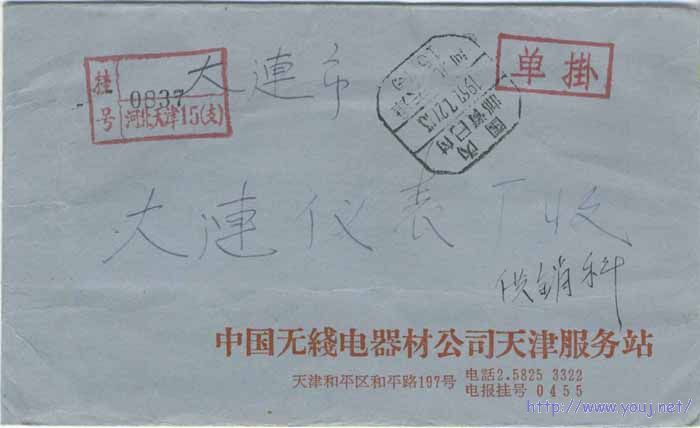 挂号
0837
河北天津15(支)
大連市
国内
邮资已付
河北天津
单掛
大連仪表厂收
供銷科
中国无綫电器材公司天津服务站
天津和平区和平路197号
电話2.5825 3322
电报挂号 0455
http://www.youj.net/